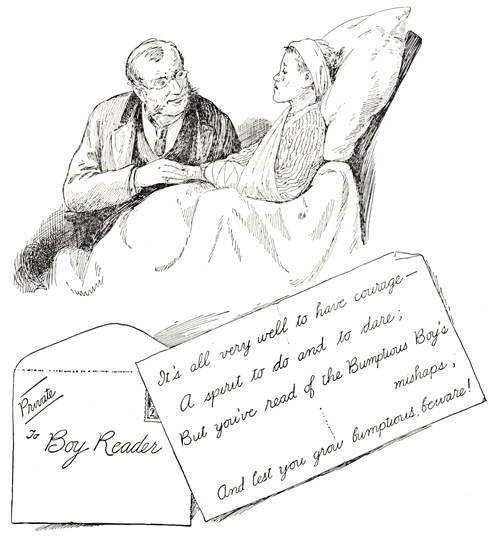 It's all very well to have courage—
A spirit to do and to dare;
But you've read of the Bumptious Boy's
mishaps;
And lest you grow bumptious, beware!
Private
To Boy Reader
2